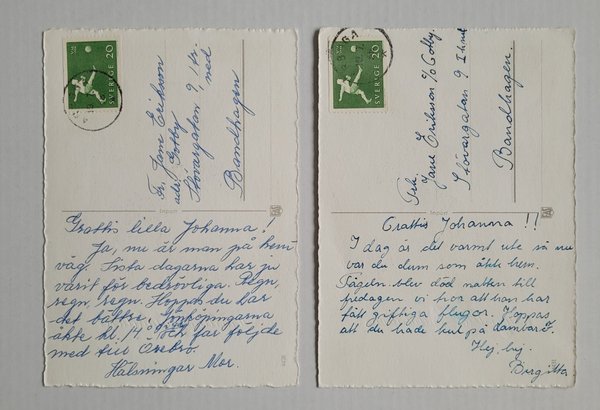 SVERIGE 20
Fr. Jane Erikson
adr. Gotby
Stövargatan 9, 1 tr. ned
Bandhagen
Import
Grattis lilla Johanna!
Ja, nu är man på hem
väg. Sista dagarna har ju
varit för bedrövliga. Regn,
regn, regn. Hoppas du har
det bättre. Linköpingarna
åkte kl. 14 och far följde
med till Örebro.
Hälsningar Mor.
SVERIGE 20
Frk.
Jane Eriksson c/o Gotby
Stövargatan 9 I
Bandhagen.
Import
Grattis Johanna!!
I dag är det varmt ute så nu
var du dum som åkte hem.
Fågeln blev död natten till
fredagen vi tror att han har
fått giftiga flugor. Hoppas
att du hade kul på
Hej, hej.
Birgitta